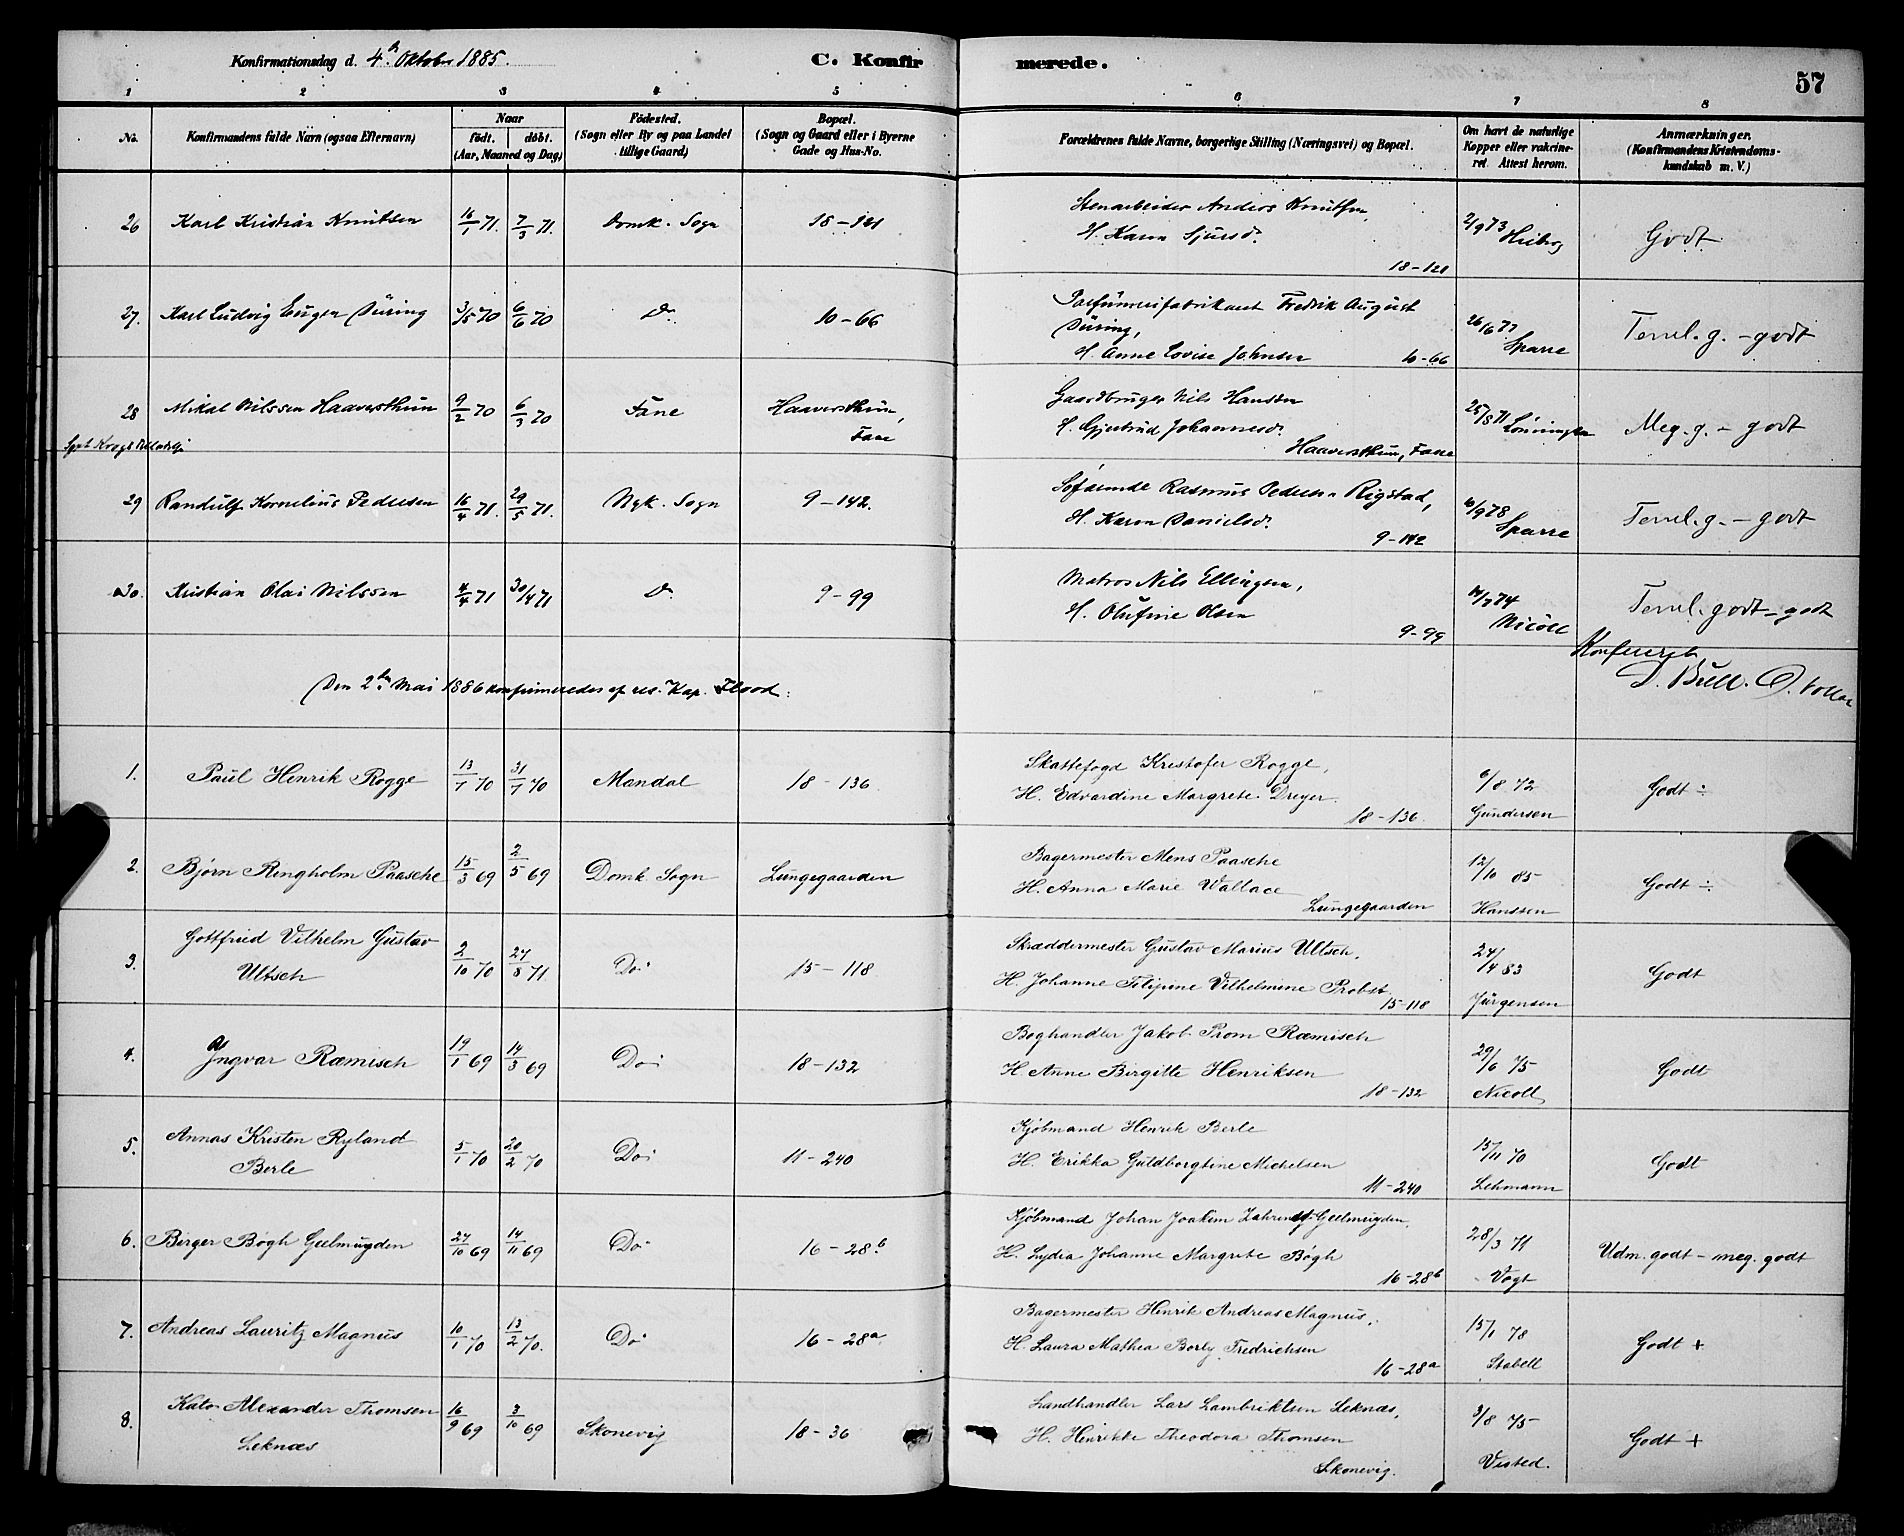 Konfirmationsdag d. 4de Oktober 1885.
C. Konfirmerede.
57
1 2 3 4 5 6 7 8
No.
Konfirmandens fulde Navn (ogsaa Efternavn)
Naar
født. døbt.
(Aar, Maaned og Dag)
Fødested.
(Sogn eller By og paa Landet
tillige Gaard)
Bopæl.
(Sogn og Gaard eller i Byerne
Gade og Hus-No.
Forældrenes fulde Navne, borgerlige Stilling (Næringsvei) og Bopæl.
Om havt de naturlige
Kopper eller vakcine-
ret Attest herom.
Anmærkninger.
(Konfirmandens Kristendoms-
kundskab m. V.)
26 Karl Kristian Knutsen 16/1 71. 7/3 71. Domk. Sogn 18-121
Stenarbeider Anders Knutsen,
H. Karen Sjursd.
18-121
2/9 73 Heiberg
Godt
27. Karl Ludvig Eugen Düring 3/5 70 6/6 70 Do 10-66
Parfümerifabrikant Fredrik August
Düring,
H. Anne Lovise Johnsen 10-66
26/6 77
Sparre
Temel. g. - godt
28 Mikal Nilssen Haaversthun 9/2 70 6/3 70 Fane Haaversthun,
Fane
Gaardbruger Nils Hansen
H. Gjertrud Johannesd.
Haaversthun, Fane
25/8 71
Meg. g. - godt
29 Randulf Kornelius Pedersen 16/4 71. 29/5 71. Nyk. Sogn 9-142.
Søfarende Rasmus Pedersen Rigstad,
H. Karen Danielsd.
9-142
/9 78
Sparre
Temel. g. - godt
30. Kristian Olai Nilssen 4/4 71 30/4 71 Do 9-99
Matros Nils Ellingsen,
H. Olufine Olsen
9-99
/7 74
Nicoll
Temel. godt - godt
Konfereret
D. Bull. O.
Den 2den Mai 1886 konfirmeredes af res. Kap. Flood:
1. Paul Henrik Rogge 13/7 70 31/7 70 Mandal 18-136
Skattefogd Kristofer Rogge,
H. Edvardine Margrete Dreyer.
18-136.
6/8 72
Gundersen
Godt ÷
2. Bjørn Ringholm Paasche 15/3 69 2/5 69 Domk. Sogn Lungegaarden
Bagermester Mens Paasche
H. Anna Marie Wallace
Lungegaarden
12/10 85
Hanssen
Godt ÷
3. Gottfried Vilhelm Gustav
Ultsch 2/10 70 27/8 71. Do 15-118
Skræddermester Gustav Marius Ultsch,
H. Johanne Filipine Vilhelmine Probst
15-118
24/4 83
Jürgensen
Godt
4. Ingvar Ræmisch 19/1 69 14/3 69 Do 18-132
Boghandler Jakob Prom Ræmisch
H. Anne Birgitte Henriksen
18-132
29/6 75
Nicoll
Godt
5. Annas Kristen Ryland
Berle 5/1 70 20/2 70 Do 11-240
Kjøbmand Henrik Berle
H. Erikka Guldborgtine Michelsen
11-240
15/11 70
Lehmann
Godt
6. Berger Bøgh Geelmuyden 27/10 69 14/11 69 Do 16-28b
Kjøbmand Johan Joakim Geelmuyden,
H. Lydia Johanne Margrete Bøgh
16-28b
28/3 71
Vogt
Udm. godt - meg. godt
7. Andreas Lauritz Magnus 10/1 70 13/2 70. Do 16-28a
Bagermester Henrik Andreas Magnus,
H. Laura Mathea Borly Fredrichsen
16-28a
15/1 78
Stabell
Godt +
8. Kato Alexander Thomsen
Leknæs 16/9 69 3/10 69 Skonevig 18-36
Landhandler Lars Lambriktsen Leknæs,
H. Henrikke Theodora Thomsen
Skonevig.
3/8 75
Visted.
Godt +